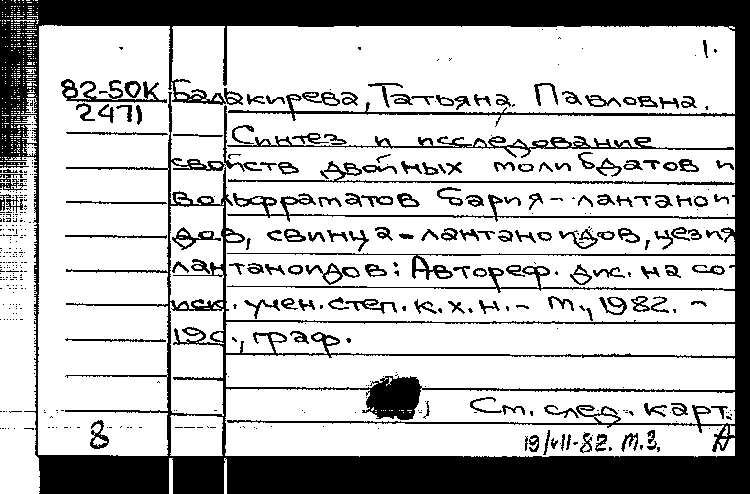 1.
82-50К Балакирева, Татьяна Павловна.
2471
Синтез и исследование
свойств двойных молибдатов и
вольфраматов бария-лантанои-
дов, свинца-лантаноидов, цезия
лантаноидов: Автореф. дис. на со-
иск. учен. степ. к. х. н. - М., 1982. -
19с., граф.
См. след. карт.
8
19/VII-82. М.З. А